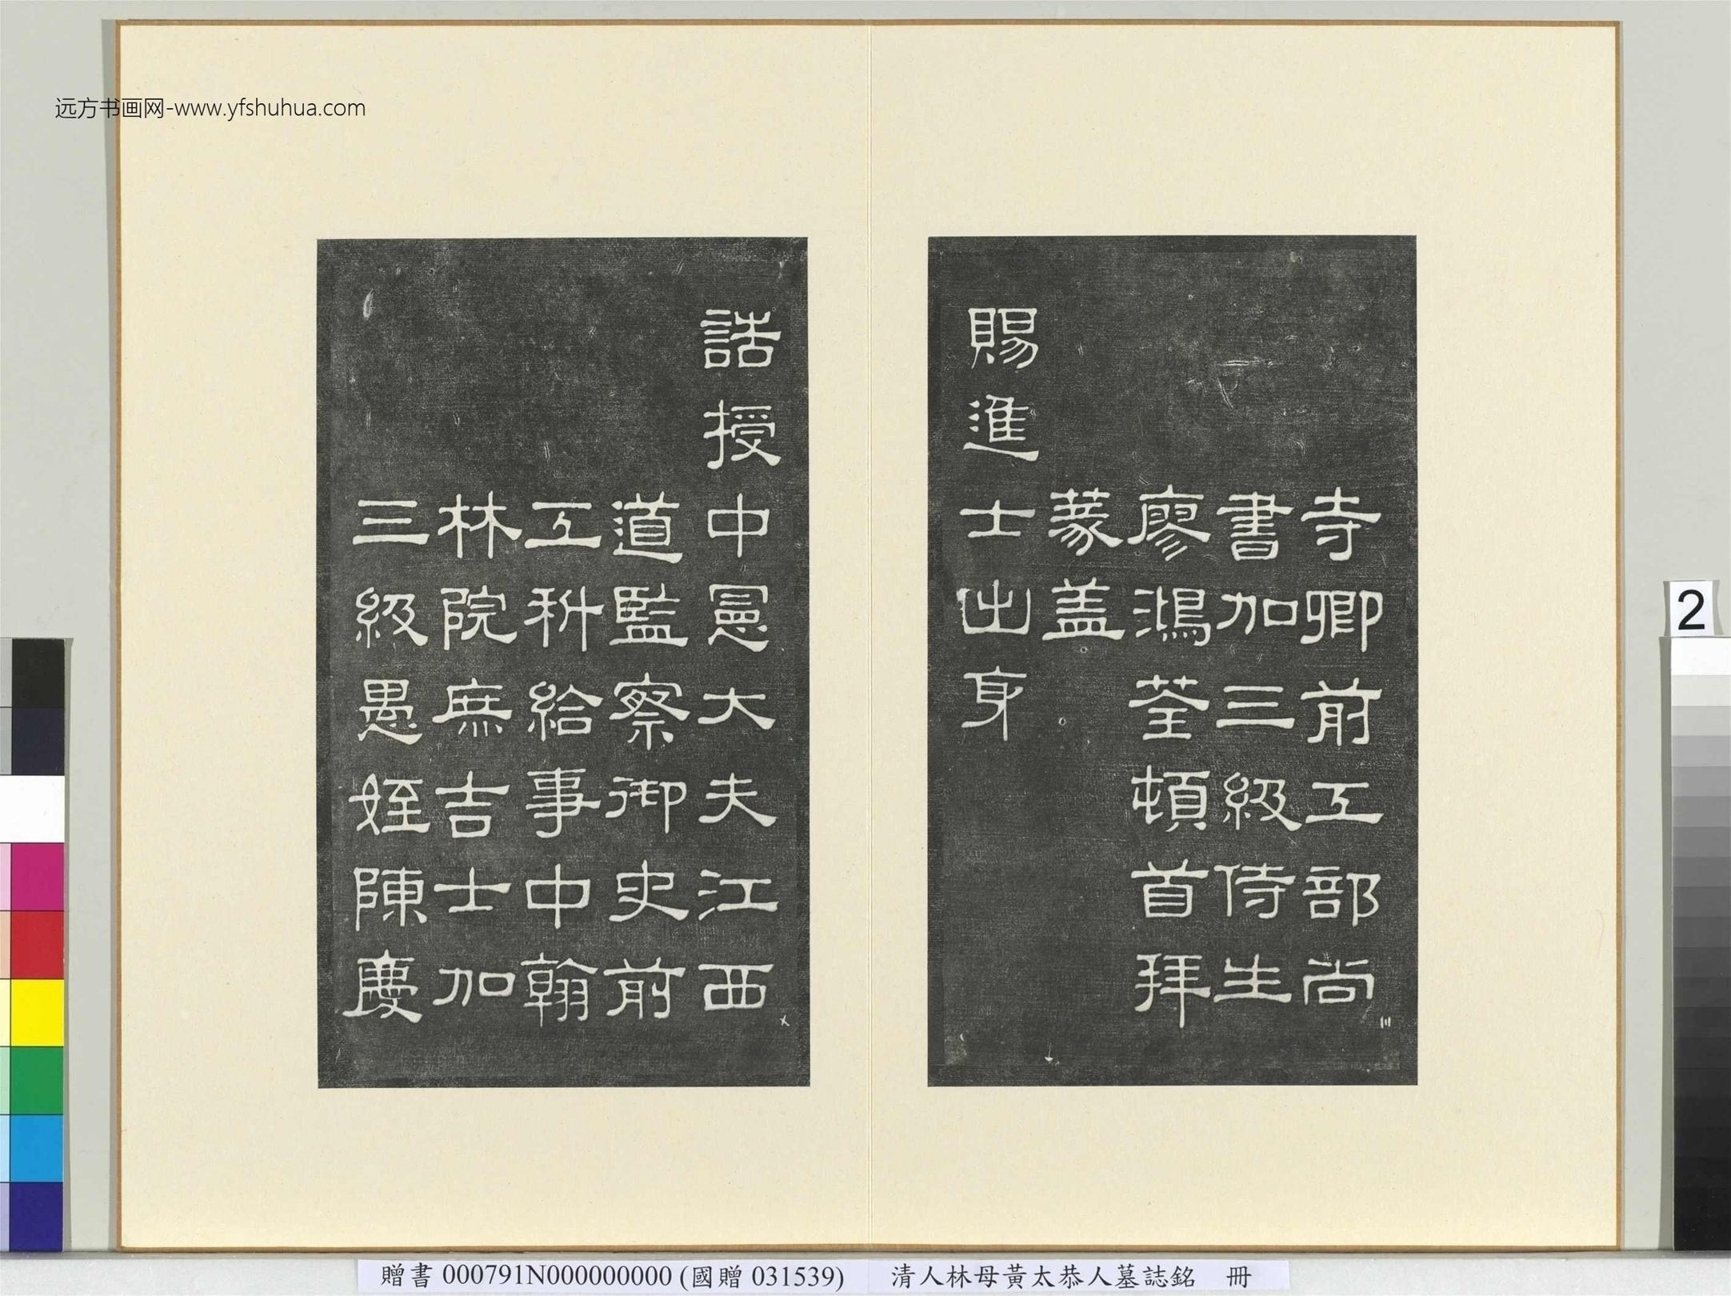 远方书画网-www.yfshuhua.com
寺卿前工部尚
書加三級侍生
廖鴻荃頓首拜
篆盖
賜進士出身
誥授中憲大夫江西
道監察御史前
工科給事中翰
林院庶吉士加
三級愚姪陳慶
2
贈書 000791N000000000 (國贈 031539) 清人林母黃太恭人墓誌銘 冊